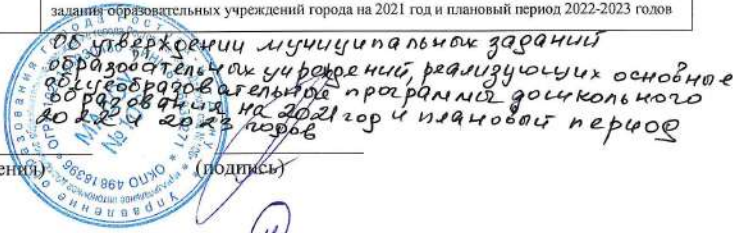 задания образовательных учреждений города на 2021 год и плановый период 2022-2023 годов
Об утверждении муниципальных заданий
образовательных учреждений, реализующих основные
общеобразовательные программы дошкольного
образования на 2021 год и плановый период
2022 и 2023 годов
ения) (подпись)
Управление образования города Рост
ОКПО 49818396 * ОГРН
МА
№